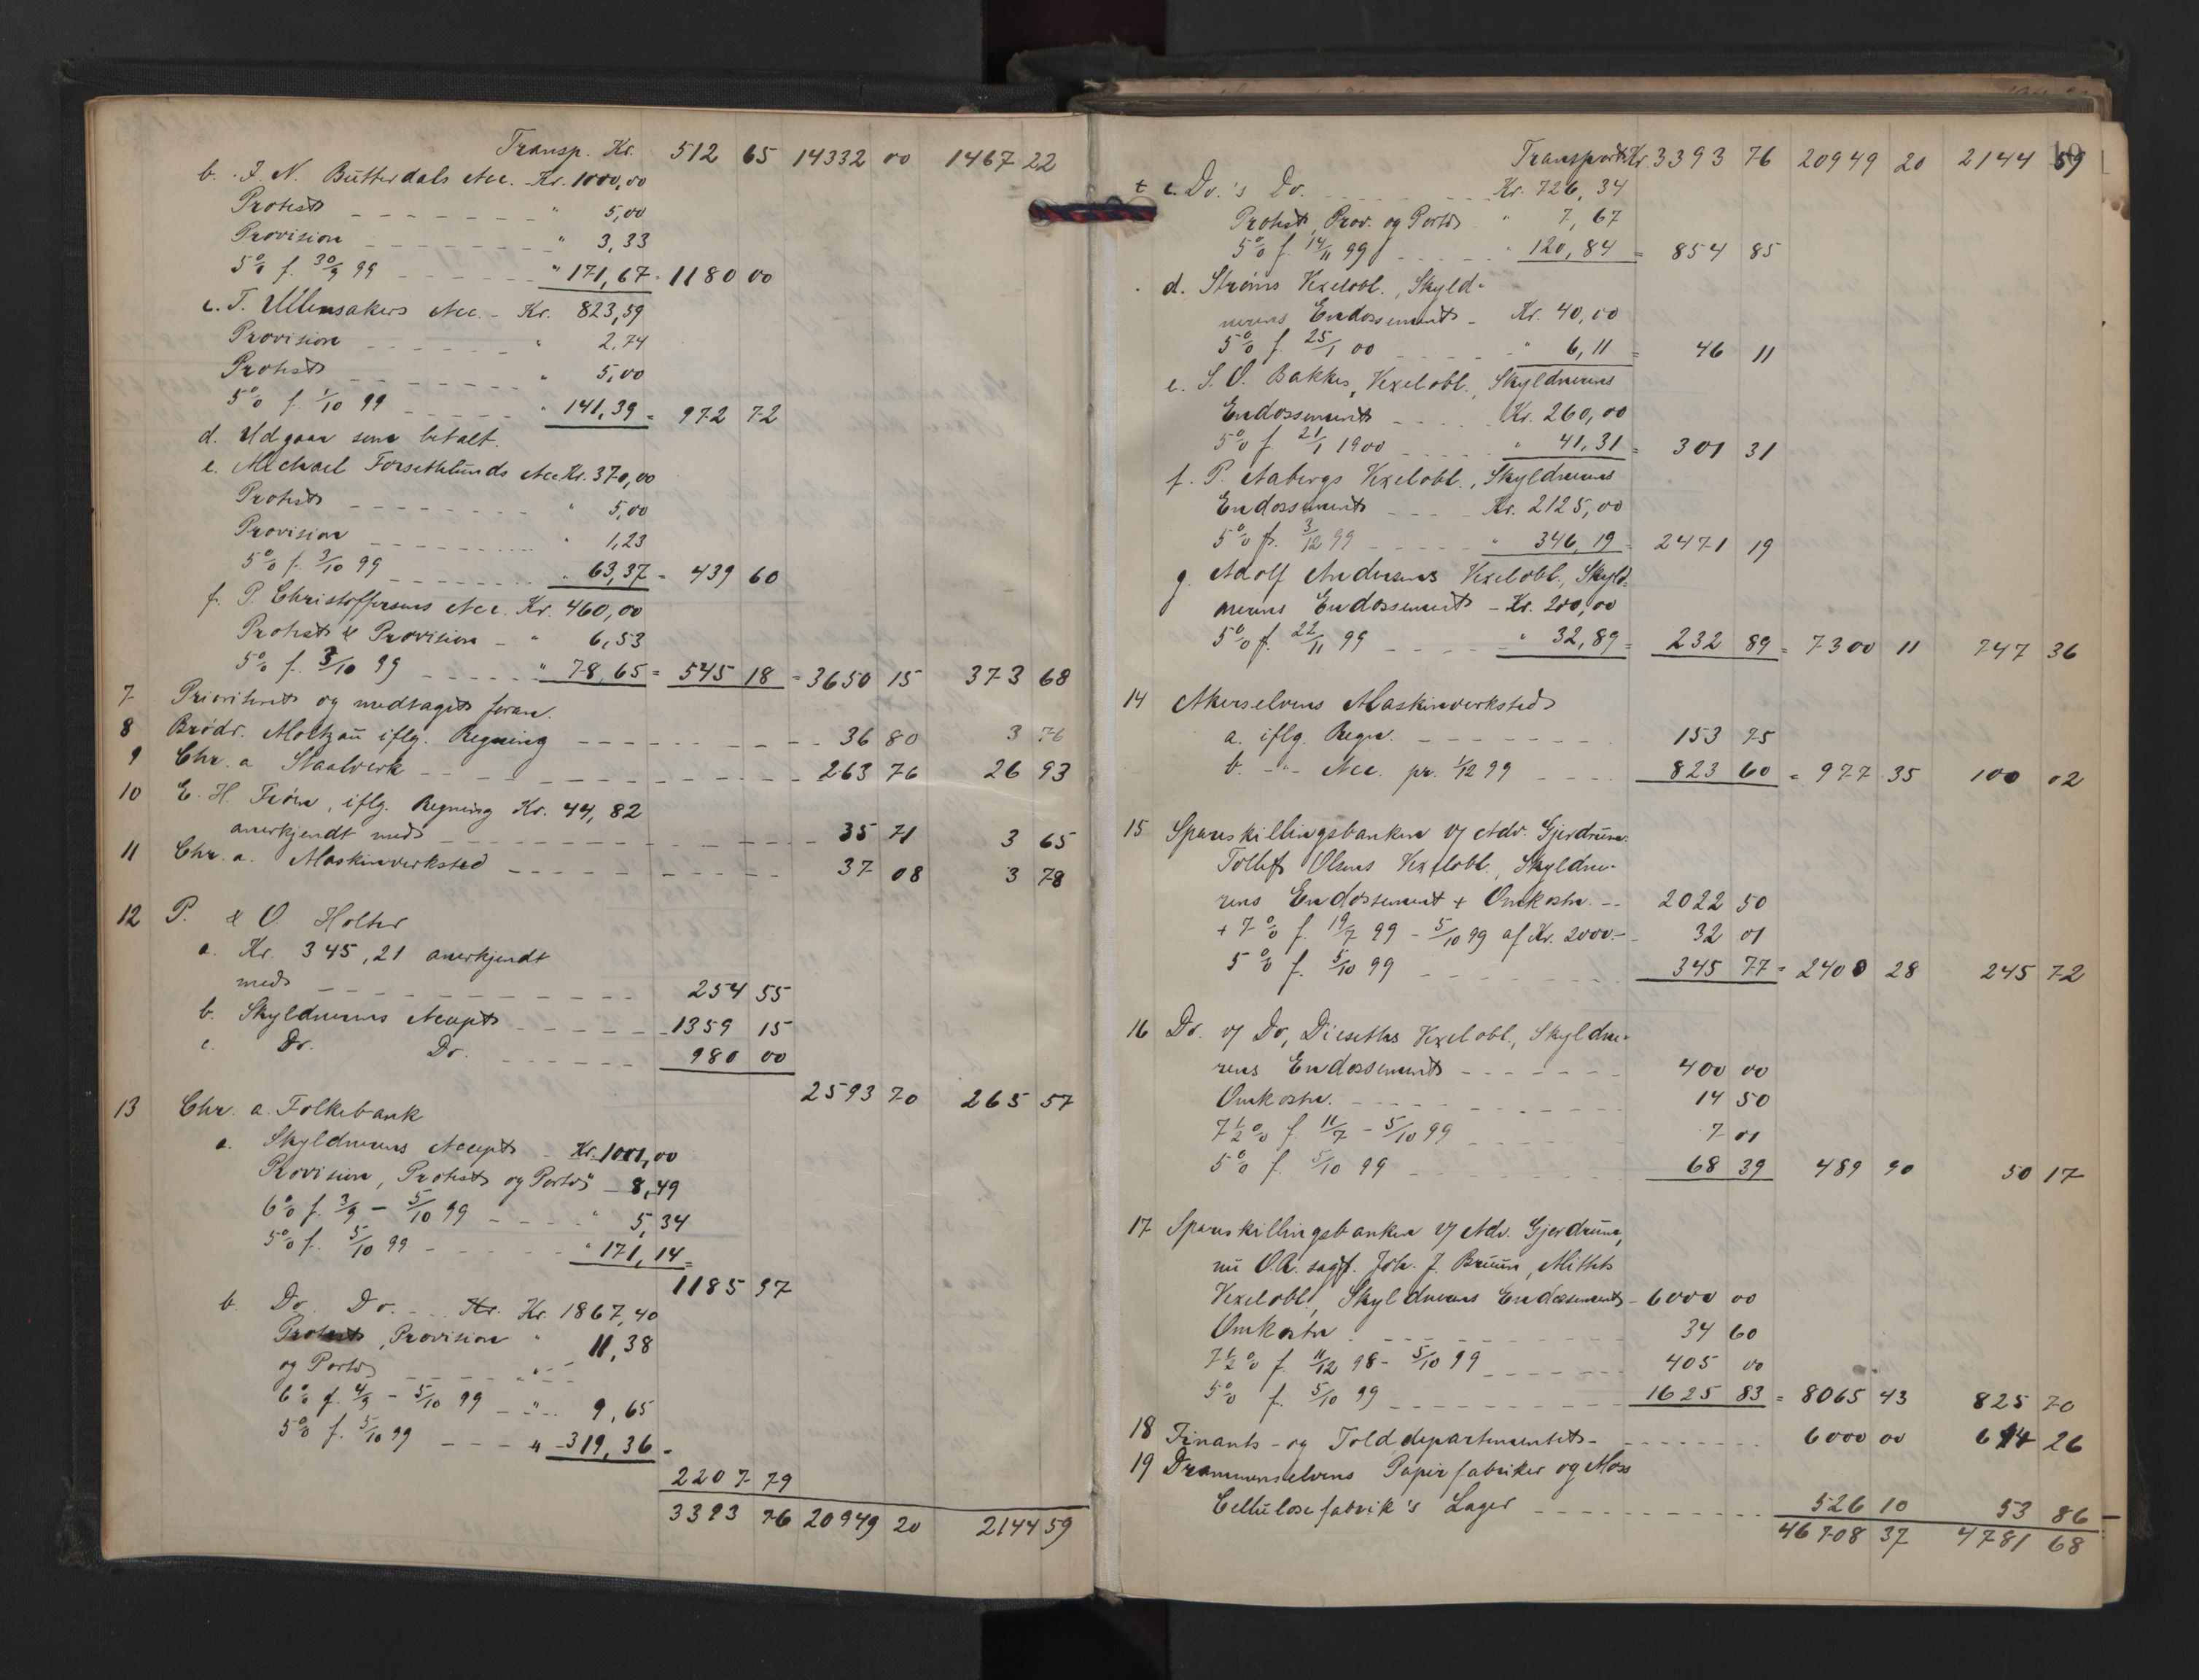 Transp. Kr. 512 65 14332 00 1467 22
b. J. N. Butterdals Acc. - Kr. 1000,00
Protest - - - " 5,00
Provision - - - " 3,33
5% f. 30/9 99 - - - " 171,67 = 1180 00
c. T. Ullensakers Acc. - Kr. 823,59
Provision - - - " 2,74
Protest - - - " 5,00
5% f. 1/10 99 - - - " 141,39 = 972 72
d. Udgaar som betalt.
e. Michael Forsethlunds Acc. Kr. 370,00
Protest - - - " 5,00
Provision - - - " 1,23
5% f. 3/10 99 - - - " 63,37 = 439 60
f. P. Christoffersens Acc. Kr. 460,00
Protest & Provision - " 6,53
5% f. 3/10 99 - - - " 78,65 = 545 18 = 3650 15 373 68
7 Prioriteret og medtaget foran.
8 Brødr. Moltzau iflg. Regning - - - 36 80 3 76
9 Chr. a Staalverk - - - 263 76 26 93
10 E. H. Trøm, iflg. Regning Kr. 44,82
anerkjendt med - - - 35 71 3 65
11 Chr. a. Maskinverksted - - - 37 08 3 78
12 P. & O. Holter
a. Kr. 345,21 anerkjendt
med - - - 254 55
b. Skyldnerens Accept - - - 1359 15
c. Do. Do. - - - 980 00
2593 70 265 57
13 Chr. a. Folkebank
a. Skyldnerens Accept - Kr. 1001,00
Provision, Protest og Porto " - 8,49
6% f. 3/9 - 5/10 99 - - - " 5,34
5% f. 5/10 99 - - - " 171,14 =
1185 97
b. Do. Do. - - Kr. Kr. 1867,40
Protest, Provision " 11,38
og Porto - - - " -
6% f. 4/9 - 5/10 99 - " - 9,65
5% f. 5/10 99 - - - " - 319,36 =
2207 79
3393 76 20949 20 2144 59
19
Transport Kr. 3393 76 20949 20 2144 59
+ c. Do.'s Do. - - - Kr. 726,34
Protest, Prov. og Porto " 7,67
5% f. 14/11 99 - - - " 120,84 = 854 85
d. Strøms Vexelobl., Skyld-
nerens Endossement - Kr. 40,00
5% f. 25/1 00 - - - " 6,11 = 46 11
e. S. O. Bakkes, Vexelobl., Skyldnerens
Endossement - - - Kr. 260,00
5% f. 21/1 1900 - - - " 41,31 = 301 31
f. P. Aabergs Vexelobl., Skyldnerens
Endossement - - - Kr. 2125,00
5% fr. 3/12 99 - - - " 346,19 = 2471 19
g. Adolf Andersens Vexelobl., Skyld-
nerens Endossement - Kr. 200,00
5% f. 22/11 99 - - - " 32,89 = 232 89 = 7300 11 747 36
14 Akerselvens Maskinverksted
a. iflg. Regn. - - - 153 75
b. - " - Acc. pr. 1/12 99 - - - 823 60 = 977 35 100 02
15 Spareskillingsbanken v/ Adv. Gjerdrum.
Tollef Olsens Vexelobl., Skyldne-
rens Endossement + Omkostn. - - 2022 50
+ 7% f. 19/7 99 - 5/10 99 af Kr. 2000.- - 32 01
5% f. 5/10 99 - - - 345 77 = 2400 28 245 72
16 Do. v/ Do, Dieseths Vexelobl., Skyldne-
rens Endossement - - - 400 00
Omkostn. - - - 14 50
7 1/2 % f. 11/7 - 5/10 99 - - - 7 01
5% f. 5/10 99 - - - 68 39 489 90 50 17
17 Spareskillingsbanken v/ Adv. Gjerdrum,
nu O.R. sagf. Joh. J. Bruun,
Vexelobl., Skyldnerens Endossement - 6000 00
Omkostn. - - - 34 60
7 1/2 % f. 11/12 98 - 5/10 99 - - - 405 00
5% f. 5/10 99 - - - 1625 83 = 8065 43 825 70
18 Finants- og Tolddepartementet - - - 6000 00 614 26
19 Drammenselvens Papirfabriker og Moss
Cellulosefabrik's Lager - - - 526 10 53 86
46708 37 4781 68